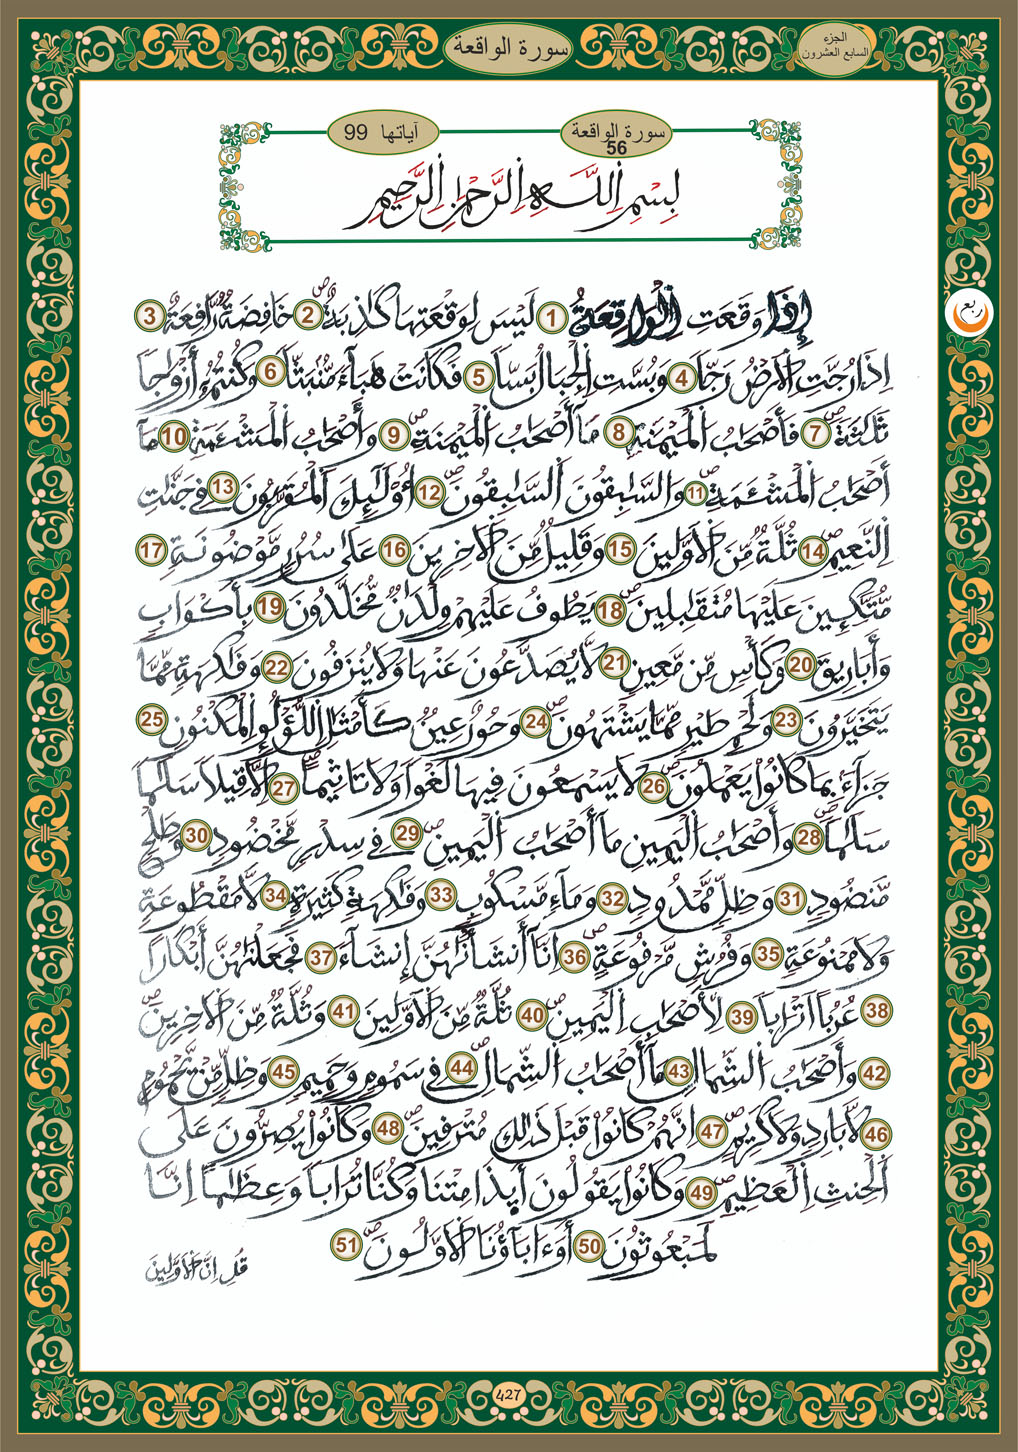 الجزء
السابع العشرون
سورة الواقعة
سورة الواقعة
56
آياتها 99
بِسْمِ اِللَّهِ اِلرَّحْمَٰنِ اِلرَّحِيمِ
ربع
إِذَا وَقَعَتِ اِلْوَاقِعَةُ 1 لَيْسَ لِوَقْعَتِهَا كَٰذِبَةٌ 2 خَافِضَةٌ رَّافِعَةٌ 3
اِذَا رُجَّتِ اِلَارْضُ رَجّاٗ 4 وَبُسَّتِ اِلْجِبَالُ بَسّاٗ 5 فَكَانَتْ هَبَآءٗ مُّنۢبَثّاٗ 6 وَكُنتُمُۥٓ أَزْوَٰجاٗ
ثَلَٰثَةٗ 7 فَأَصْحَٰبُ اُلْمَيْمَنَةِ 8 مَآ أَصْحَٰبُ اُلْمَيْمَنَةِ 9 وَأَصْحَٰبُ اُلْمَشْـَٔمَةِ 10 مَآ
أَصْحَٰبُ اُلْمَشْـَٔمَةِ 11 وَالسَّٰبِقُونَ اَلسَّٰبِقُونَ 12 أُوْلَٰٓئِكَ اَلْمُقَرَّبُونَ 13 فِے جَنَّٰتِ
اِلنَّعِيمِ 14 ثُلَّةٌ مِّنَ اَلَاوَّلِينَ 15 وَقَلِيلٌ مِّنَ اَلَاخِرِينَ 16 عَلَىٰ سُرُرٍ مَّوْضُونَةٍ 17
مُّتَّكِـِٕينَ عَلَيْهَا مُتَقَٰبِلِينَ 18 يَطُوفُ عَلَيْهِمْ وِلْدَٰنٌ مُّخَلَّدُونَ 19 بِأَكْوَابٍ
وَأَبَارِيقَ 20 وَكَأْسٍ مِّن مَّعِينٍ 21 لَّا يُصَدَّعُونَ عَنْهَا وَلَا يُنزَفُونَ 22 وَفَٰكِهَةٍ مِّمَّا
يَتَخَيَّرُونَ 23 وَلَحْمِ طَيْرٍ مِّمَّا يَشْتَهُونَ 24 وَحُورٌ عِينٌ كَأَمْثَٰلِ اِللُّؤْلُؤِ اِلْمَكْنُونِ 25
جَزَآءَۢ بِمَا كَانُواْ يَعْمَلُونَ 26 لَا يَسْمَعُونَ فِيهَا لَغْواٗ وَلَا تَاثِيماً 27 اِلَّا قِيلاٗ سَلَٰماٗ
سَلَٰماٗ 28 وَأَصْحَٰبُ اُلْيَمِينِ مَآ أَصْحَٰبُ اُلْيَمِينِ 29 فِے سِدْرٍ مَّخْضُودٍ 30 وَطَلْحٍ
مَّنضُودٍ 31 وَظِلٍّ مَّمْدُودٍ 32 وَمَآءٍ مَّسْكُوبٍ 33 وَفَٰكِهَةٍ كَثِيرَةٍ 34 لَّا مَقْطُوعَةٍ
وَلَا مَمْنُوعَةٍ 35 وَفُرُشٍ مَّرْفُوعَةٍ 36 اِنَّآ أَنشَأْنَٰهُنَّ إِنشَآءٗ 37 فَجَعَلْنَٰهُنَّ أَبْكَاراً
38 عُرُباً اَتْرَاباٗ 39 لِّأَصْحَٰبِ اِلْيَمِينِ 40 ثُلَّةٌ مِّنَ اَلَاوَّلِينَ 41 وَثُلَّةٌ مِّنَ اَلَاخِرِينَ
42 وَأَصْحَٰبُ اُلشِّمَالِ 43 مَآ أَصْحَٰبُ اُلشِّمَالِ 44 فِے سَمُومٍ وَحَمِيمٍ 45 وَظِلٍّ مِّنْ يَّحْمُومٍ
46 لَّا بَارِدٍ وَلَا كَرِيمٍ 47 اِنَّهُمْ كَانُواْ قَبْلَ ذَٰلِكَ مُتْرَفِينَ 48 وَكَانُواْ يُصِرُّونَ عَلَى
اَلْحِنثِ اِلْعَظِيمِ 49 وَكَانُواْ يَقُولُونَ أَئِذَا مِتْنَا وَكُنَّا تُرَاباٗ وَعِظَٰماً اِنَّا
لَمَبْعُوثُونَ 50 أَوَءَابَآؤُنَا اَلَاوَّلُونَ 51
قُلِ اِنَّ اَلَاوَّلِينَ
427